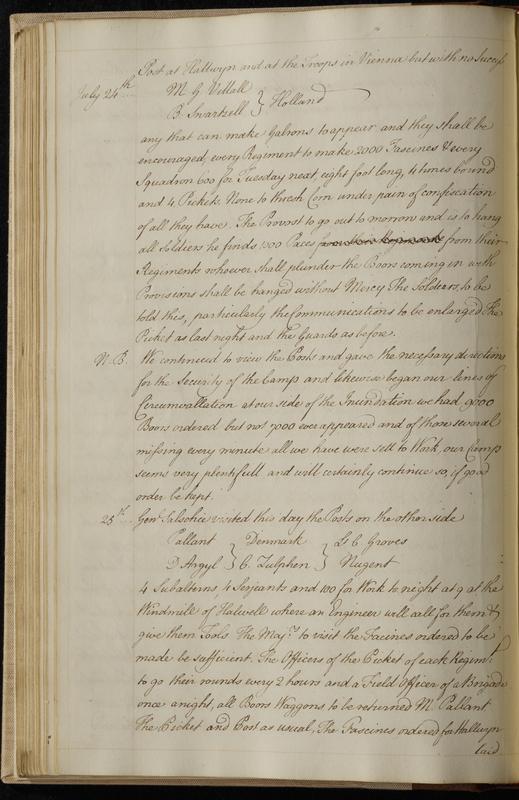 Post at Hallwyn and at the Troops in Vienna but with no Success
July 24th M. G Villall
B. Swartzell } Holland
any that can make Gabrons to appear and they shall be
encouraged, every Regiment to make 2000 Fascines & every
Squadron 600 for Tuesday neat, eight foot long, 4 times bound
and 4 Pickets. None to thresh Corn under pain of confiscation
of all they have. The Provost to go out to morrow and is to hang
all Soldiers he finds 1500 Paces from their Regiments from their
Regiments whoever shall plunder the Boors coming in with
Provisions shall be hanged without Mercy The Soldiers, to be
told this, particularly the Communications to be enlarged The
Picket as last night and the Guards as before.
N.B. We continued to view the Posts and gave the necessary directions
for the Security of the Camp and likewise began our lines of
Circumvallation at our side of the Inundation we had 9000
Boors ordered but not 7000 ever appeared and of those several
missing every minute all we have were sell to Work, our Camp
seems very plentifull and will certainly continue so, if good
order be kept.
25th Genl. Salsohie visited this day the Posts on the other side
Pallant } Denmark } Lt. C Groves
D Argyl } C. Zulphen } Nugent
4 Subalterns, 4 Serjeants and 100 for Work to night at 9 at the
Windmill of Halwell where an Engineer will call for them &
give them Tools The Majr. to visit the Facines ordered to be
made be sufficient. The Officers of the Picket of each Regimt.
to go their rounds every 2 hours and a Field Officer of a Brigade
once a night, all Boors Waggons to be returned Mr. Pallant
The Picket and Post as usual, The Fascines ordered for Hallwyn
laid